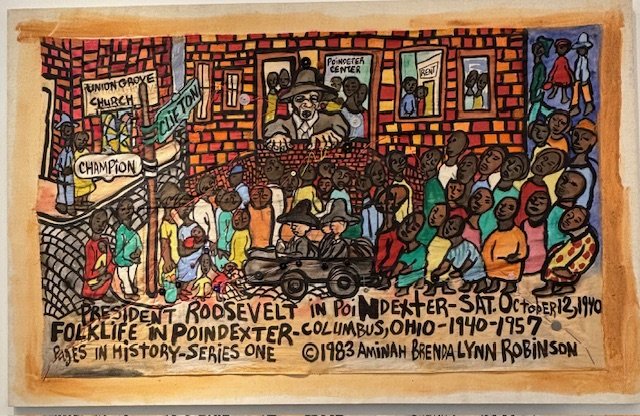 UNION GROVE
CHURCH
CLIFTON
CHAMPION
POINDEXTER
CENTER
RENT
PRESIDENT ROOSEVELT in PoiNDEXTER-SAT. OcTobER 12, 1940
FOLKLIFE IN POINDEXTER-COLUMBUS, OHIO-1940-1957
PAGES IN HISTORY-SERIES ONE ©1983 AMINAH BRENDA LYNN ROBINSON